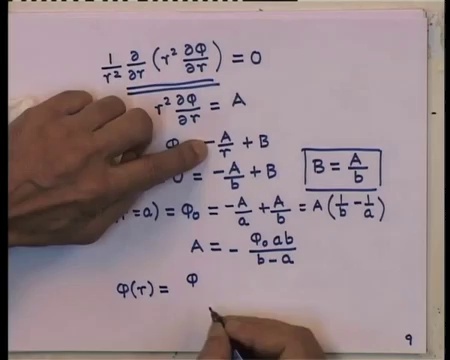 1/r² ∂/∂r (r² ∂φ/∂r) = 0
r² ∂φ/∂r = A
-A/r + B
= -A/b + B   B = A/b
=a) = φ₀ = -A/a + A/b = A(1/b - 1/a)
A = - φ₀ab/b-a
φ(r) = φ
9